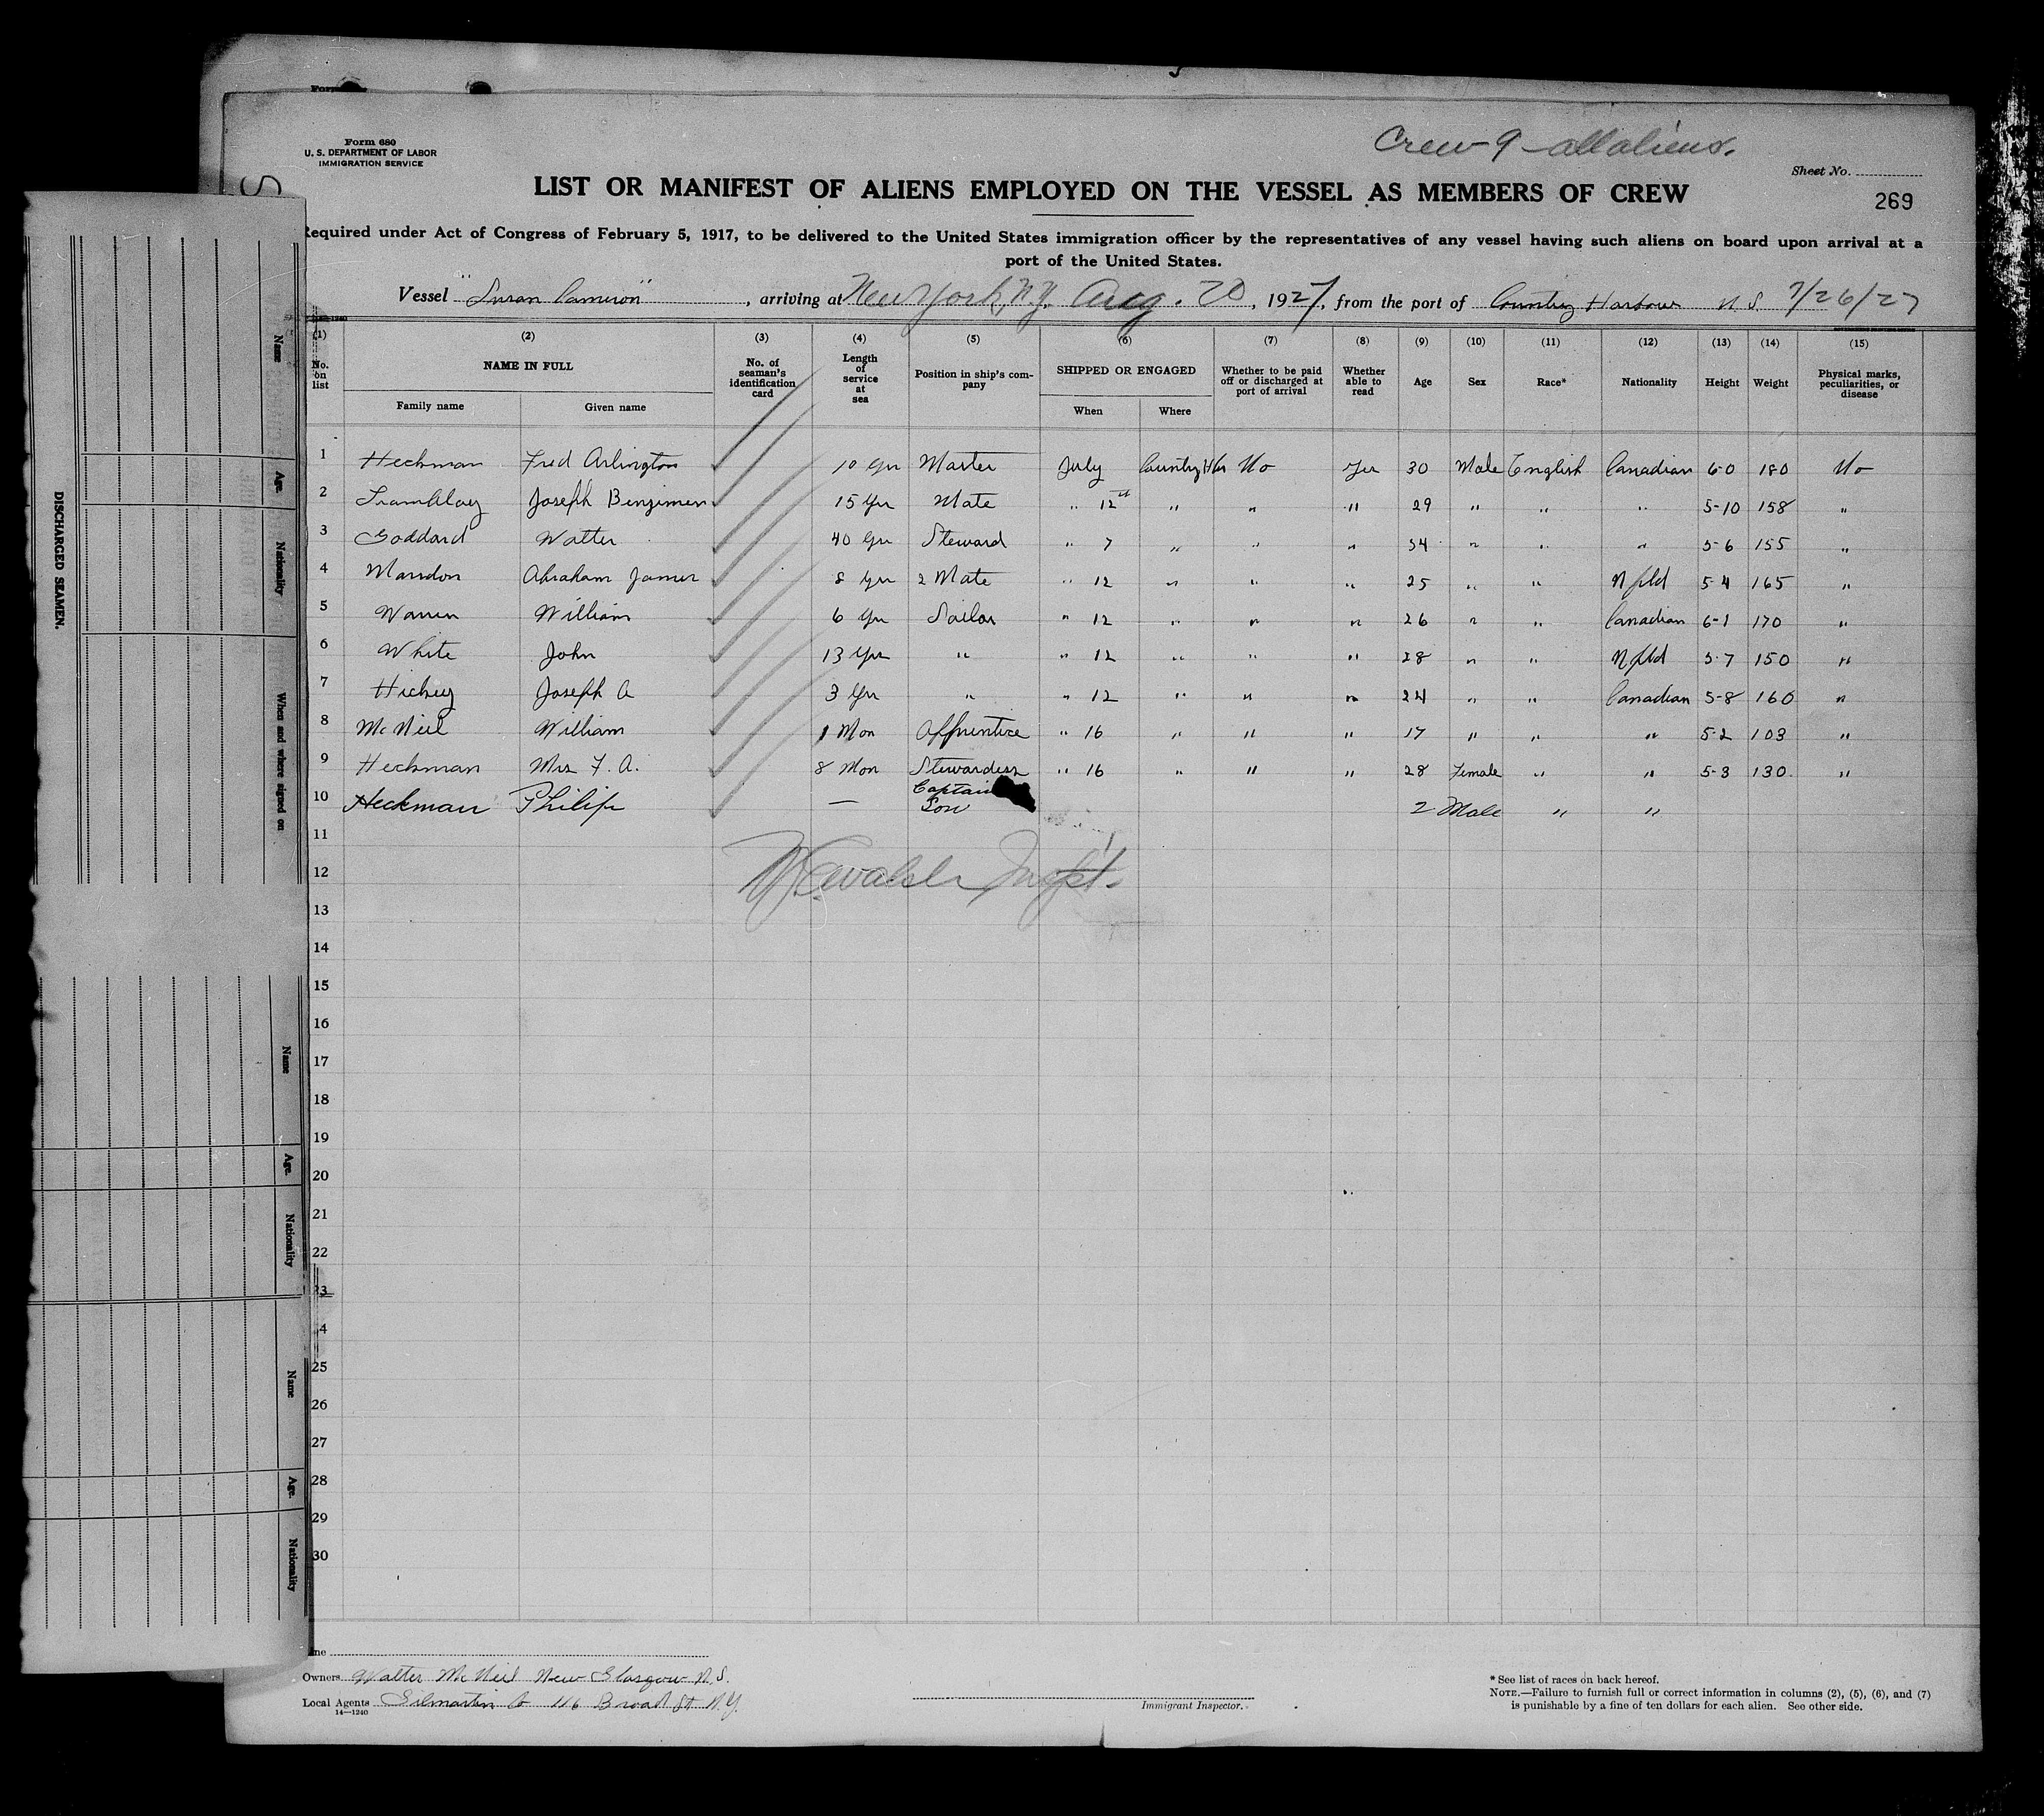 Form 680
U. S. DEPARTMENT OF LABOR
IMMIGRATION SERVICE
Crew 9 - all aliens.
Sheet No.
269
LIST OR MANIFEST OF ALIENS EMPLOYED ON THE VESSEL AS MEMBERS OF CREW
Required under Act of Congress of February 5, 1917, to be delivered to the United States immigration officer by the representatives of any vessel having such aliens on board upon arrival at a
port of the United States.
Vessel "Susan Cameron", arriving at New York, N.Y. Aug. 20, 1927, from the port of Country Harbour N.S. 7/26/27
(1) (2) (3) (4) (5) (6) (7) (8) (9) (10) (11) (12) (13) (14) (15)
No. on list NAME IN FULL No. of seaman's identification card Length of service at sea Position in ship's company SHIPPED OR ENGAGED Whether to be paid off or discharged at port of arrival Whether able to read Age Sex Race* Nationality Height Weight Physical marks, peculiarities, or disease
Family name Given name When Where
1 Heckman Fred Arlington 10 Yrs Master July Country Hbr No Yes 30 Male English Canadian 6-0 180 No
2 Tramblay Joseph Benjimen 15 Yrs Mate " 12 " " " 29 " " " 5-10 158 "
3 Goddard Walter 40 Yrs Steward " 7 " " " 54 " " " 5-6 155 "
4 Abraham James 8 Yrs 2 Mate " 12 " " " 25 " " Nfld 5-4 165 "
5 Warren William 6 Yrs Sailor " 12 " " " 26 " " Canadian 6-1 170 "
6 White John 13 Yrs " " 12 " " " 28 " " Nfld 5-7 150 "
7 Hickey Joseph A 3 Yrs " " 12 " " " 24 " " Canadian 5-8 160 "
8 McNeil William 1 Mon Apprentice " 16 " " " 17 " " " 5-2 103 "
9 Heckman Mrs F. A. 8 Mon Stewardess " 16 " " " 28 Female " " 5-3 130 "
10 Heckman Philip — Captain Son 2 Male " "
11
12 Inspt.
13
14
15
16
17
18
19
20
21
22
23
4
25
26
27
28
29
30
Owners Walter McNeil New Glasgow N.S.
Local Agents Gilmartin Co 116 Broad St N.Y.
14—1240
Immigrant Inspector.
* See list of races on back hereof.
NOTE.—Failure to furnish full or correct information in columns (2), (5), (6), and (7)
is punishable by a fine of ten dollars for each alien. See other side.
DISCHARGED SEAMEN.
Name
Age.
Nationality
When and where signed on
Name
Age.
Nationality
Name
Age.
Nationality